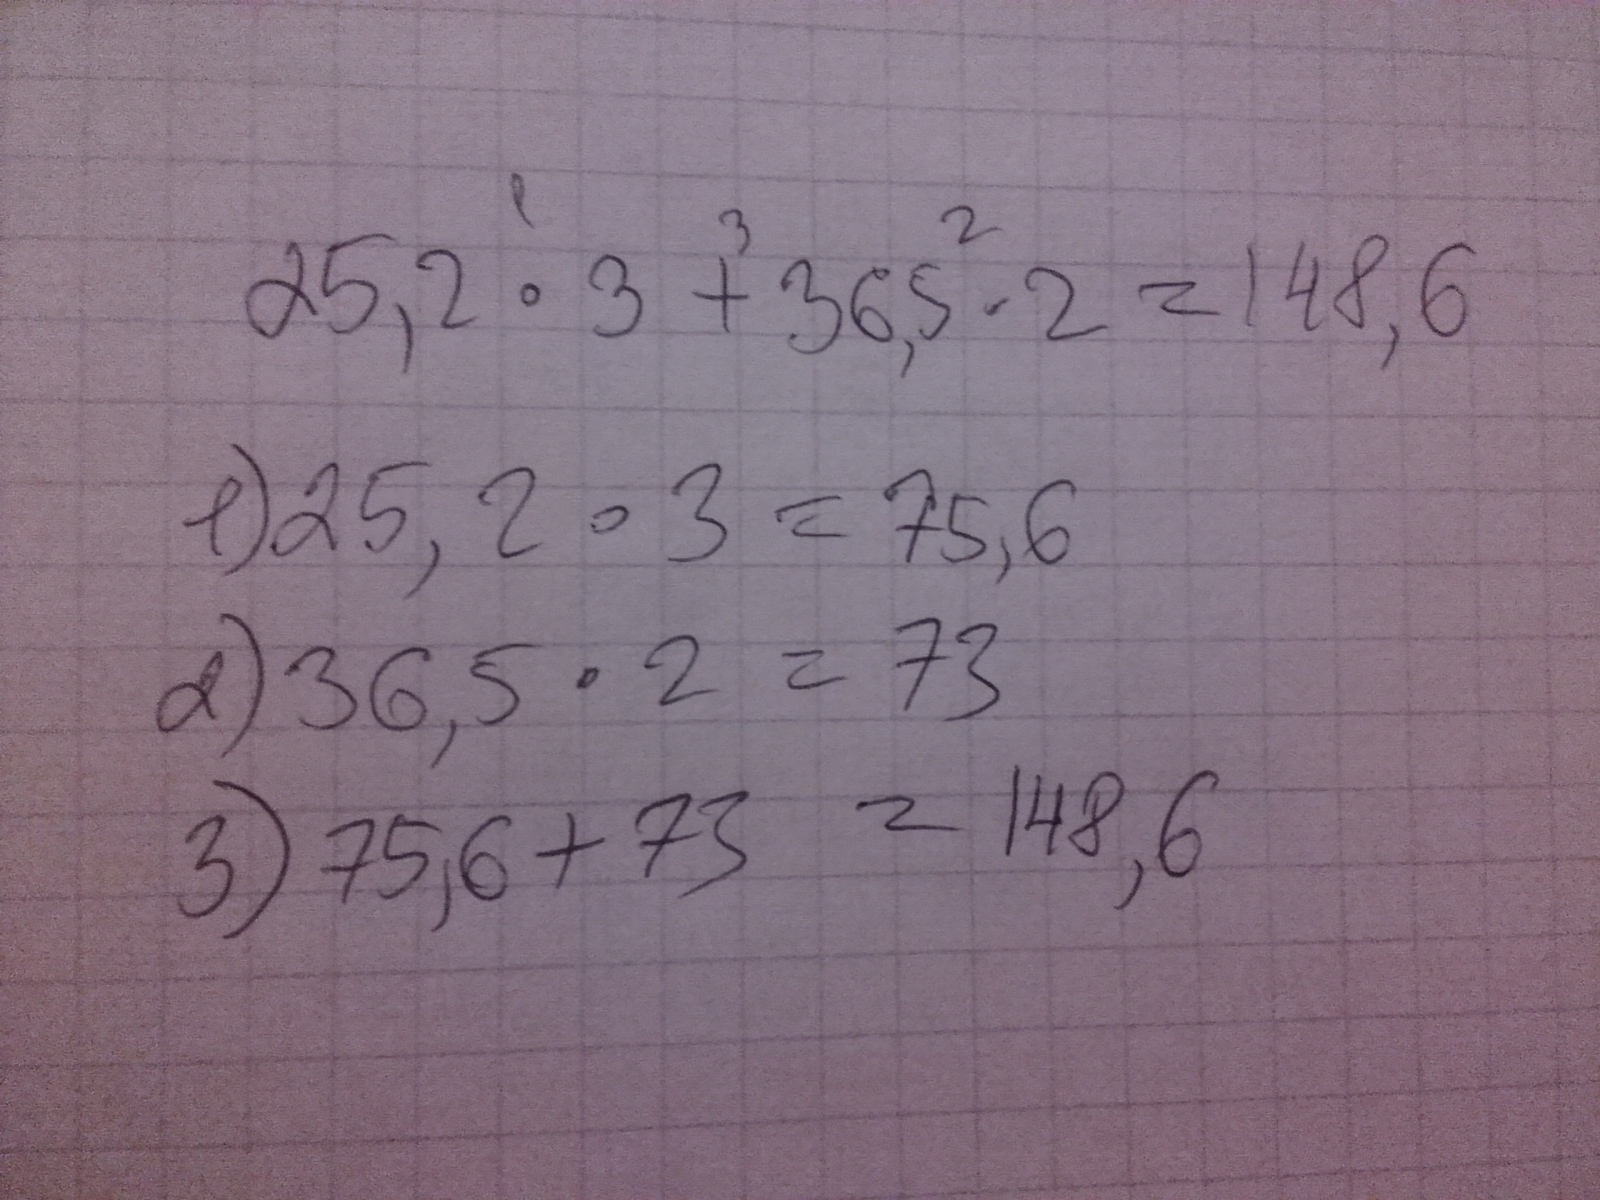 1 3 2
25,2 · 3 + 36,5 · 2 = 148,6
1) 25,2 · 3 = 75,6
2) 36,5 · 2 = 73
3) 75,6 + 73 = 148,6